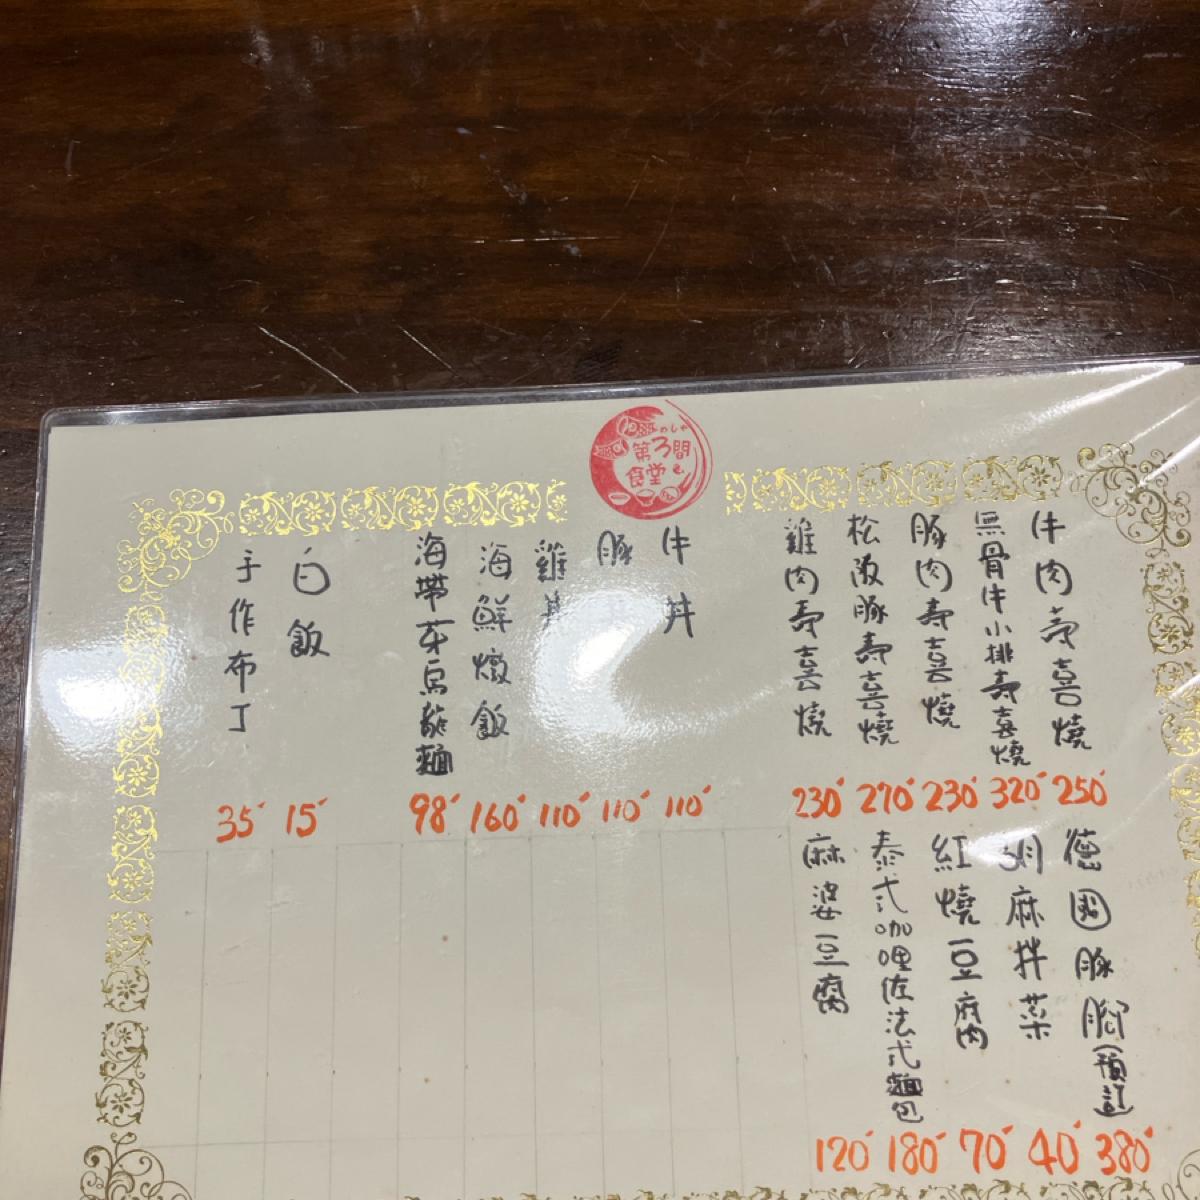 第3間
食堂
牛肉壽喜燒 250
無骨牛小排壽喜燒 320
豚肉壽喜燒 230
松阪豚壽喜燒 270
雞肉壽喜燒 230
牛丼 110
豚丼 110
雞丼 110
海鮮燉飯 160
海帶芽烏龍麵 98
白飯 15
手作布丁 35
德國豚腳(預訂 380
胡麻拌菜 40
紅燒豆腐 70
泰式咖哩佐法式麵包 180
麻婆豆腐 120